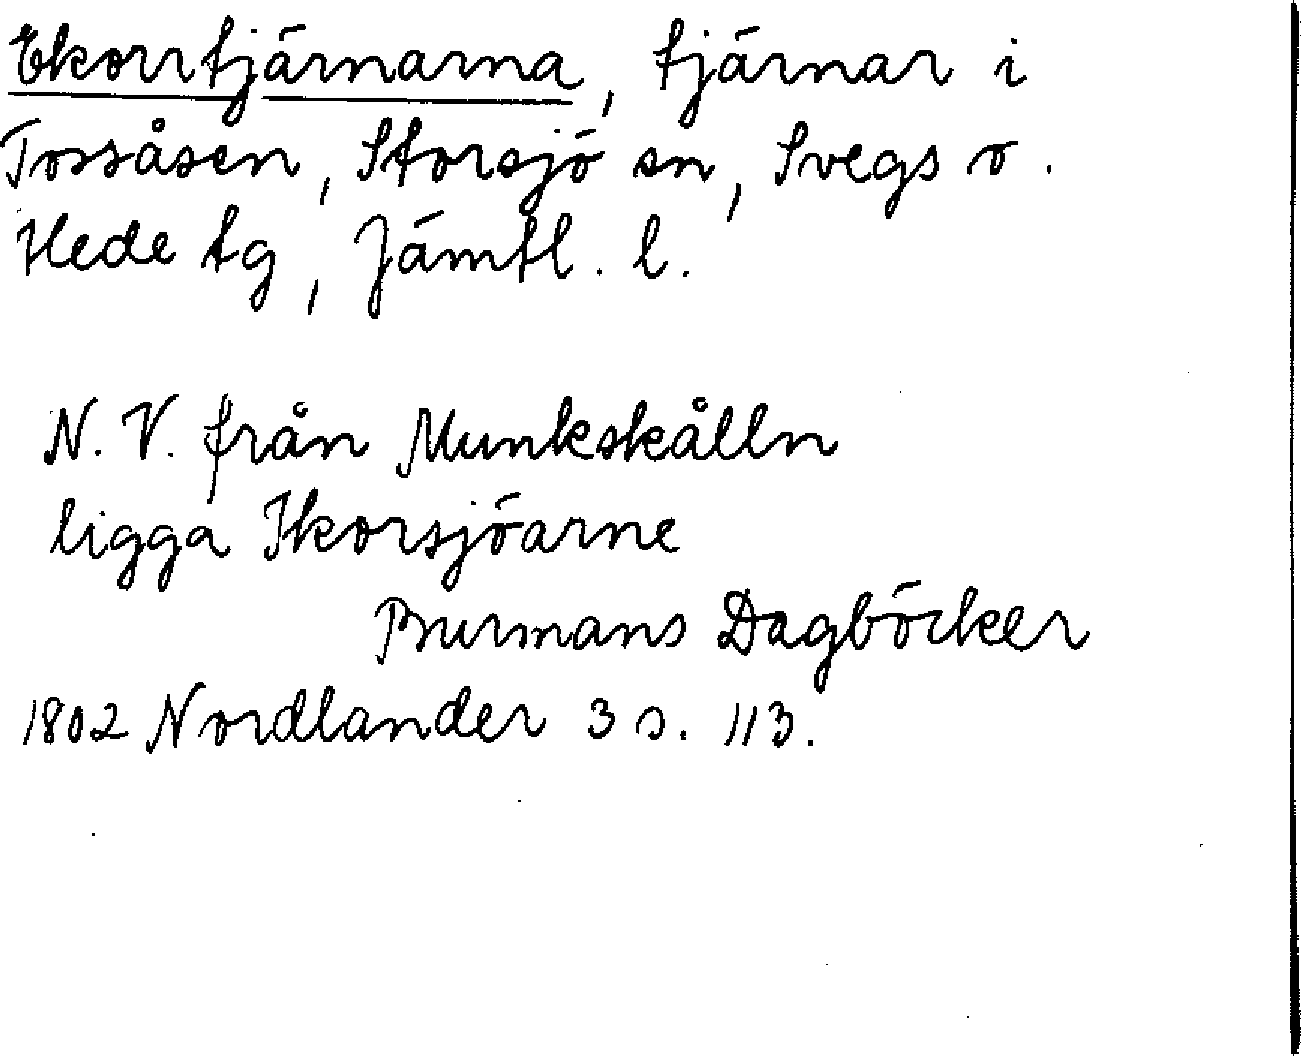 Ekorrtjärnarna, tjärnar i
Tossåsen, Storsjö sn, Svegs o.
Hede tg, Jämtl. l.
N. V. från Munkskålln
ligga Ikorsjöarne
Burmans Dagböcker
1802 Nordlander 3 s. 113.